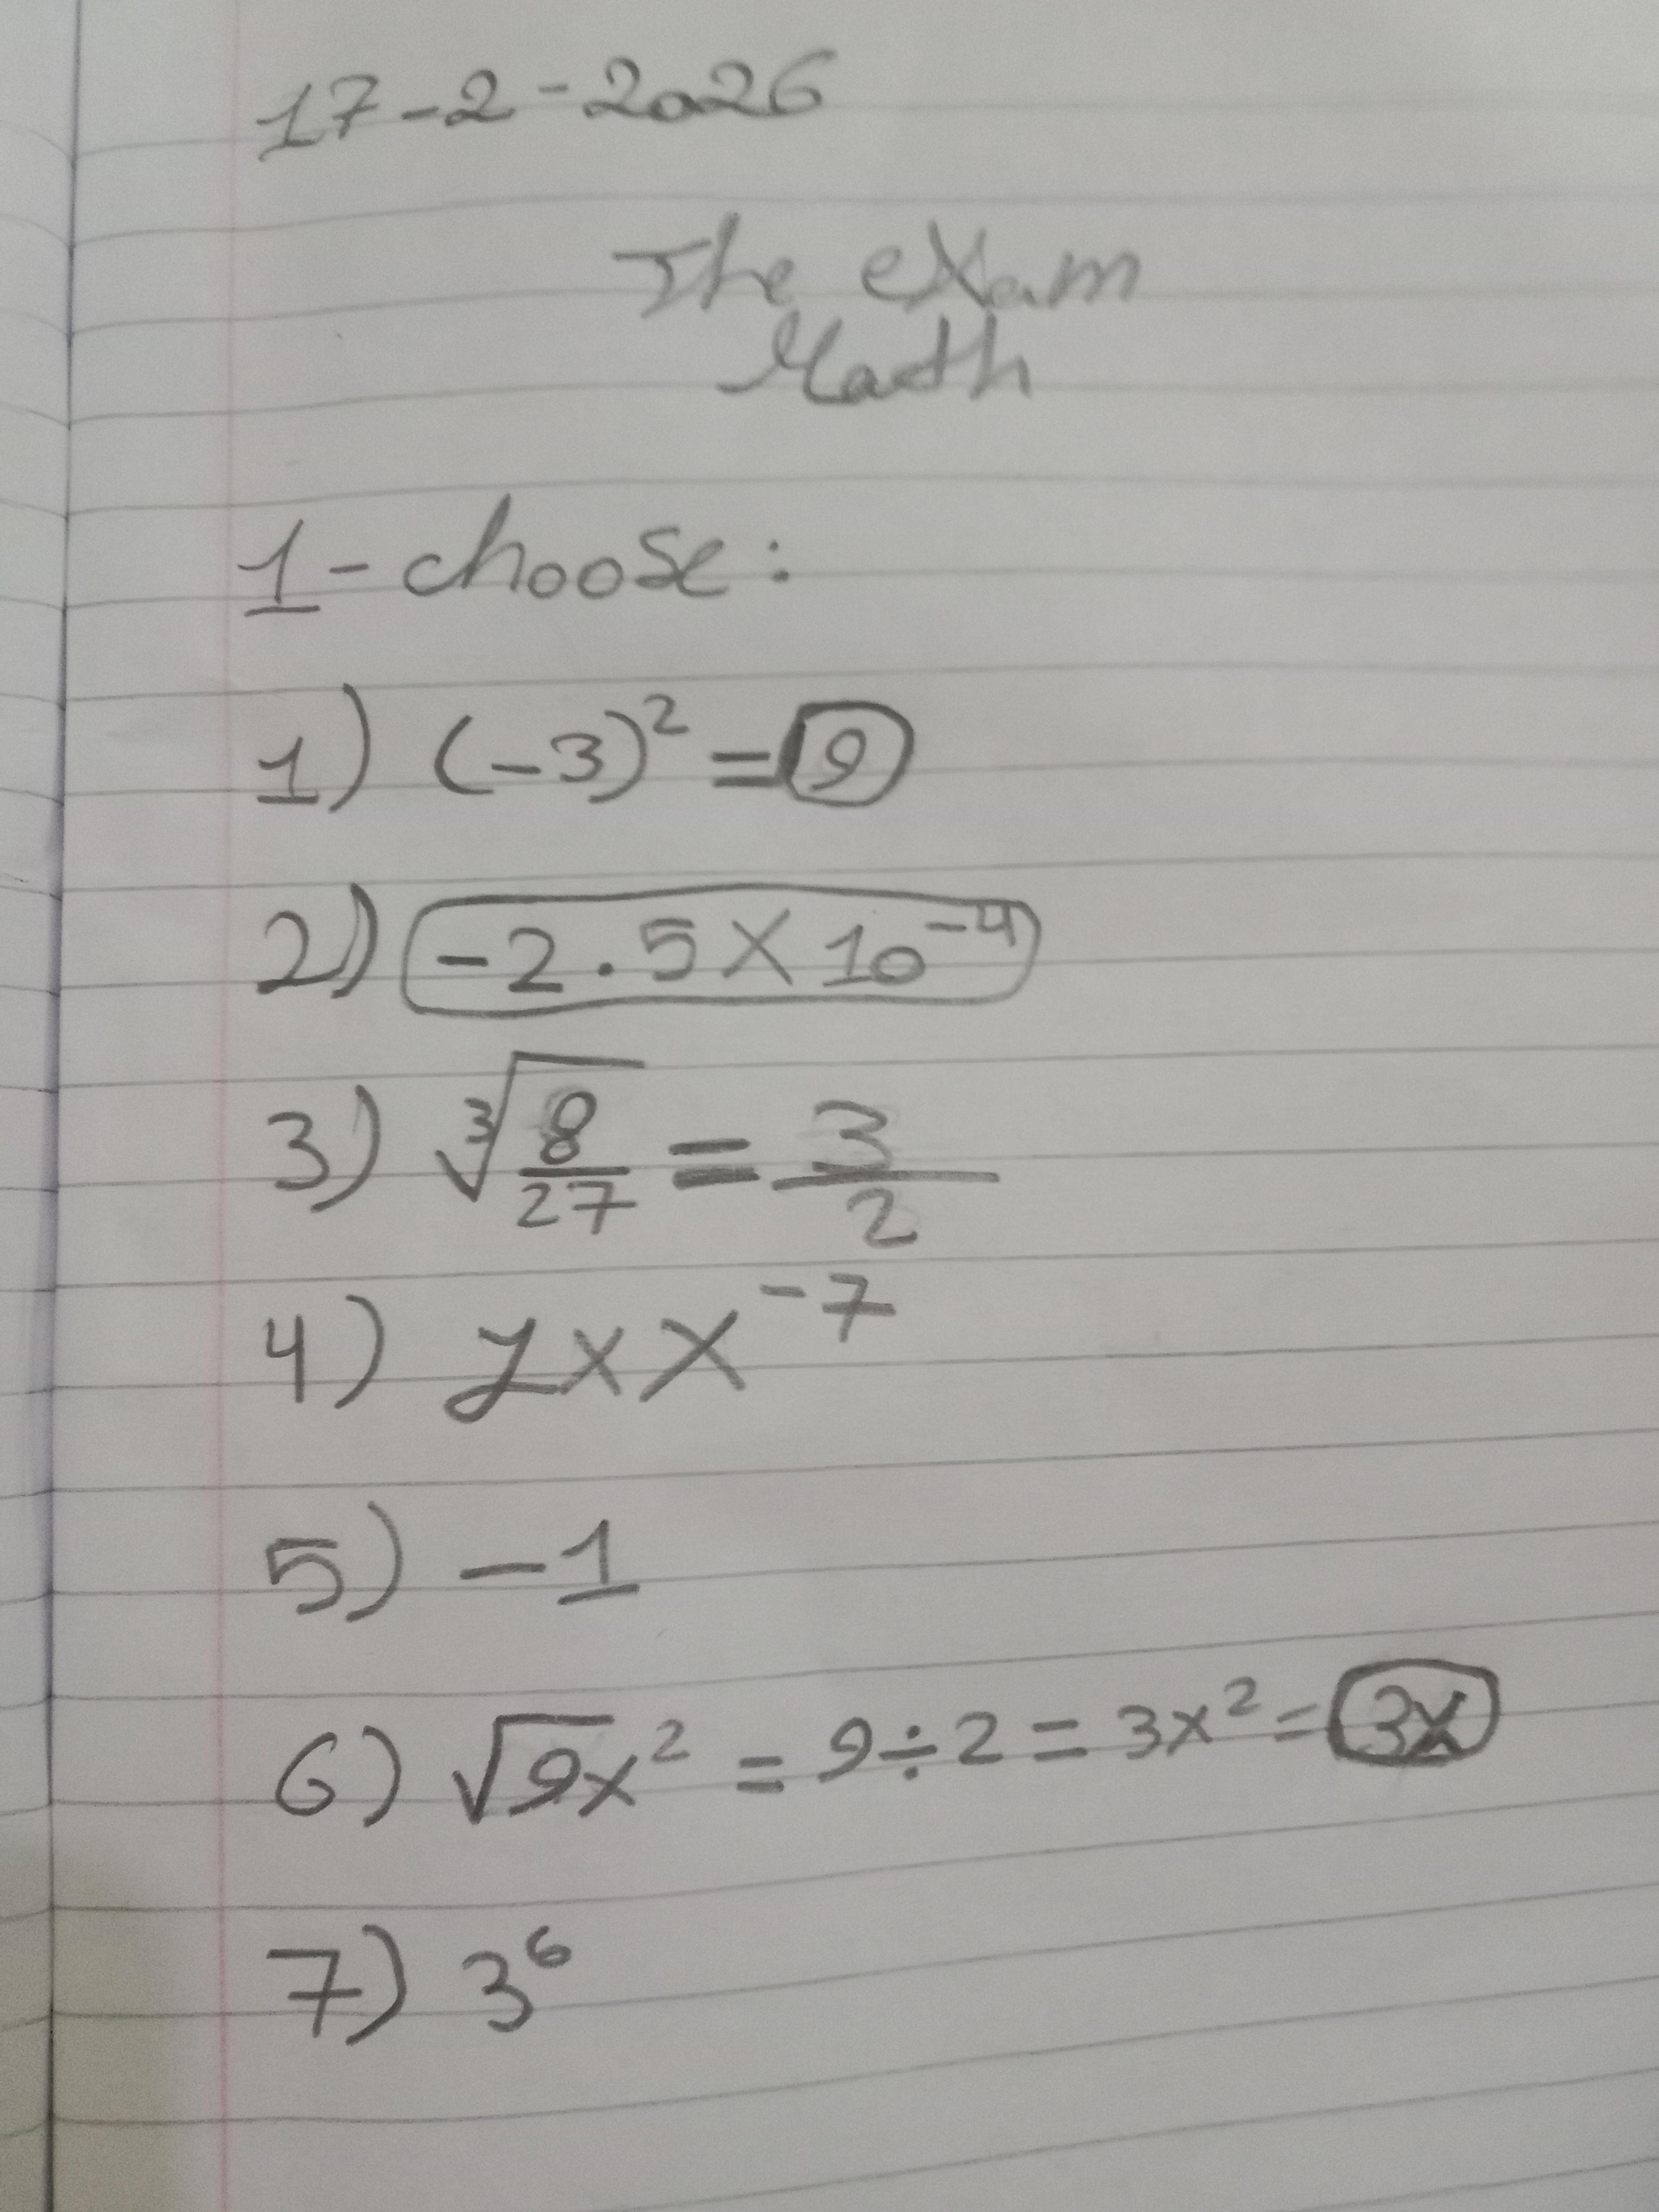 17-2-2026
The exam
Math
1-choose:
1) (-3)² = 9
2) -2.5 X 10⁻⁴
3) ∛8/27 = 3/2
4) y x X⁻⁷
5) -1
6) √9x² = 9÷2 = 3x² = 3x
7) 3⁶